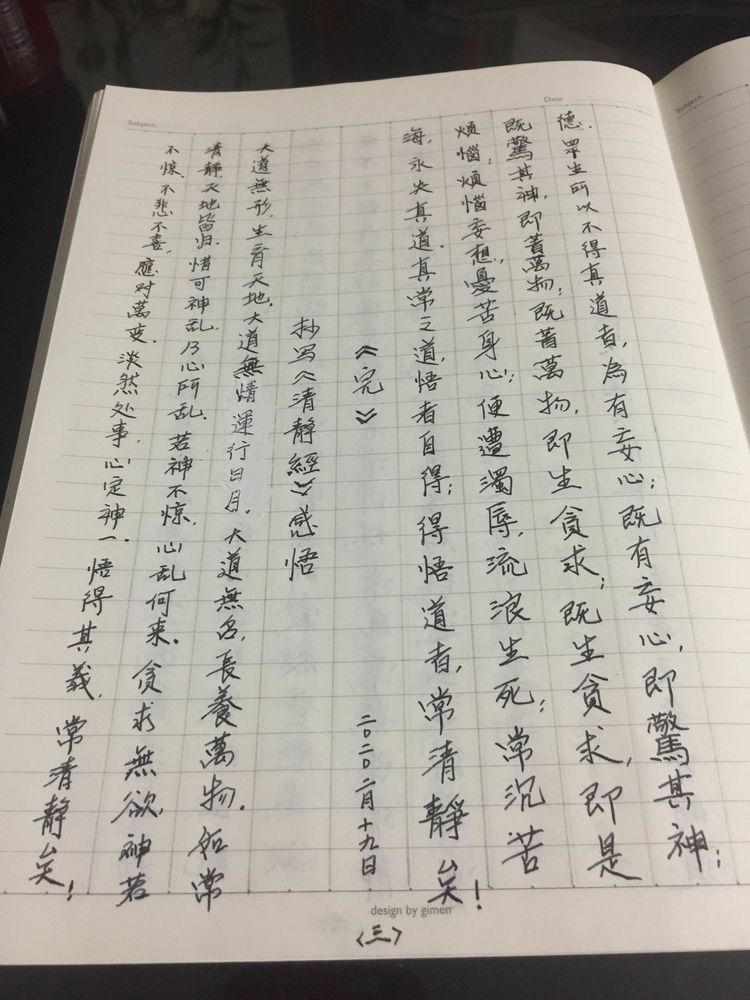 Subject.
Date
Subject.
德.眾生所以不得真道者,為有妄心;既有妄心,即驚其神;
既驚其神,即著萬物;既著萬物,即生貪求;既生貪求,即是
煩惱;煩惱妄想,憂苦身心;便遭濁辱,流浪生死;常沉苦
海,永失真道.真常之道,悟者自得;得悟道者,常清靜矣!
《完》 二〇二〇二月十九日.
抄写《清靜經》感悟
大道無形.生育天地.大道無情運行日月.大道無名,長養萬物.如常
清靜,天地皆归.惜可神乱.乃心所乱.若神不惊,心乱何来.贪求無欲,神若
不惊.不悲不喜,應对萬变.淡然处事,心定神一.悟得其義,常清靜矣!
design by gimen
〈三〉